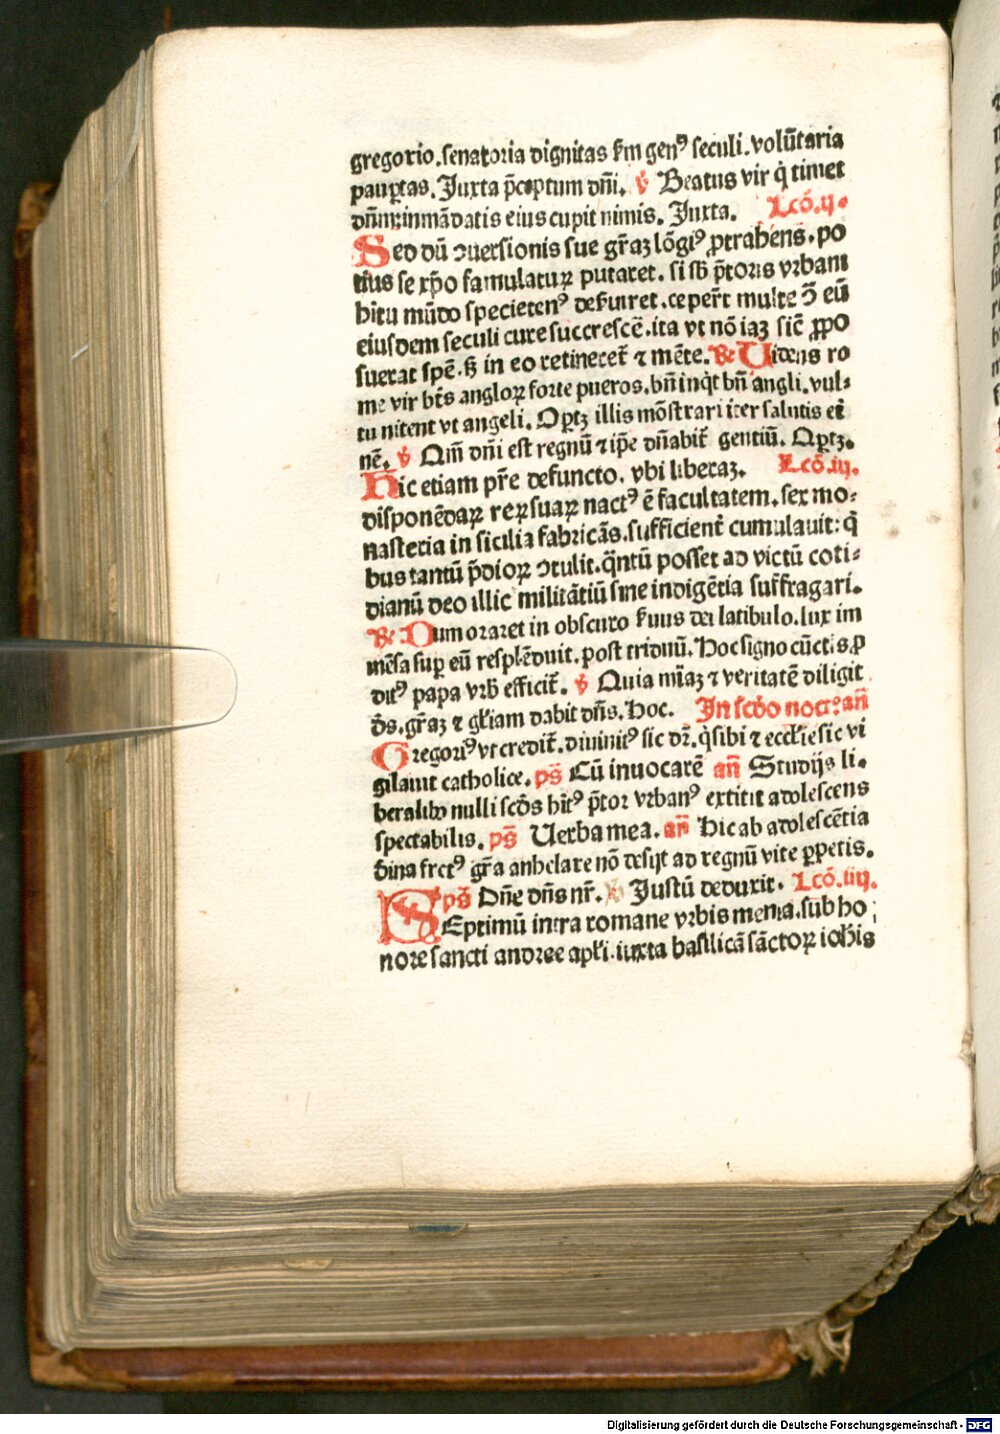 gregorio.senatoria dignitas ẜm genꝰ seculi.volūtaria
pauꝑtas.Juxta p̄ceptum dn̄i. ℣ Beatus vir q̇ timet
dn̄m:in mādatis eius cupit nimis. Juxta. Lcō.ij.
Sed dū ↄuersionis sue gr̄aꝫ lōgiꝰ ꝓtrahens.po
tius se xp̄o famulaturꝝ putaret.si sb̄ p̄toris vrbani
bitu mūdo specietenꝰ deseruiret.ceper̄t multe ↄ̄ eū
eiusdem seculi cure succrescē.ita vt nō iaꝫ sic̄ ꝓpo
suerat spē.sꝫ in eo retineret̄ ⁊ mēte.℞ Uidens ro
me vir bt̄s angloꝝ forte pueros.bn̄ inq̇t bn̄ angli.vul⸗
tu nitent vt angeli. Oꝑtꝫ illis mōstrari iter salutis et̄
nē. ℣ Qm̄ dn̄i est regnū ⁊ ip̄e dn̄abit̄ gentiū. Oꝑtꝫ.
Hic etiam pr̄e defuncto. vbi liberaꝫ. Lcō.iij.
disponēdaꝝ reꝝ suaꝝ nactꝰ ē facultatem.sex mo⸗
nasteria in sicilia fabricās.sufficient̄ cumulauit: q̇
bus tantū p̄dioꝝ ↄtulit.q̄ntū posset ad victū coti⸗
dianū deo illic militātiū sine indigētia suffragari.
℞ Dum oraret in obscuro ẜuus dei latibulo.lux im
mēsa suꝑ eū resplēduit.post triduū. Hoc signo cūctis.ꝓ
ditꝰ papa vrb̄ efficit̄. ℣ Quia mi̅aꝫ ⁊ veritatē diligit
d̄s.gr̄aꝫ ⁊ gl̄iam dabit dn̄s.Hoc. In scd̄o noct: an̄
Gregoriꝰ vt credit̄.diuinitꝰ sic dr̄.q̇ sibi ⁊ eccl̄ie sic vi
gilauit catholice.ps̄ Cū inuocarē an̄ Studijs li⸗
beralibꝰ nulli scd̄s hi̅tꝰ p̄tor vrbanꝰ extitit adolescens
spectabilis. ps̄ Uerba mea. an̄ Hic ab adolescētia
diuina fretꝰ gr̄a anhelare nō desijt ad regnū vite ꝑpetis.
ps̄ Dn̄e dn̄s nr̄. ℣ Justū deduxit. Lcō.iiij.
SEptimū intra romane vrbis menia.sub ho
nore sancti andree apl̄i.iuxta basilicā sāctoꝝ ioh̄is
Digitalisierung gefördert durch die Deutsche Forschungsgemeinschaft - DFG